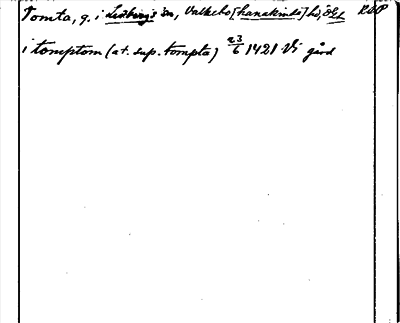 Tomta, g. i Ledbergs sn, Valkebo [hanakinds] hd, Ögl RAP
i tomptom (at. sup. tompta) 23/6 1421 Vi gård